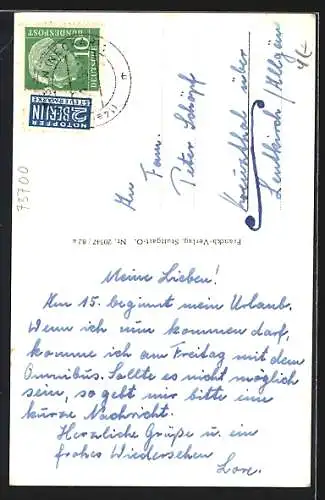 DEUTSCHE
BUNDESPOST
10
NOTOPFER
2 BERLIN
STEUERMARKE
An Fam.
Peter Schöpf
Kreuzthal über
Leutkirch / Allgäu
Franckh-Verlag, Stuttgart-O. Nr. 20147/82a
73700
4/-
Meine Lieben!
Am 15. beginnt mein Urlaub.
Wenn ich nun kommen darf,
komme ich am Freitag mit dem
Omnibus. Sollte es nicht möglich
sein, so gebt mir bitte eine
kurze Nachricht.
Herzliche Grüße u. ein
frohes Wiedersehen
Lore.